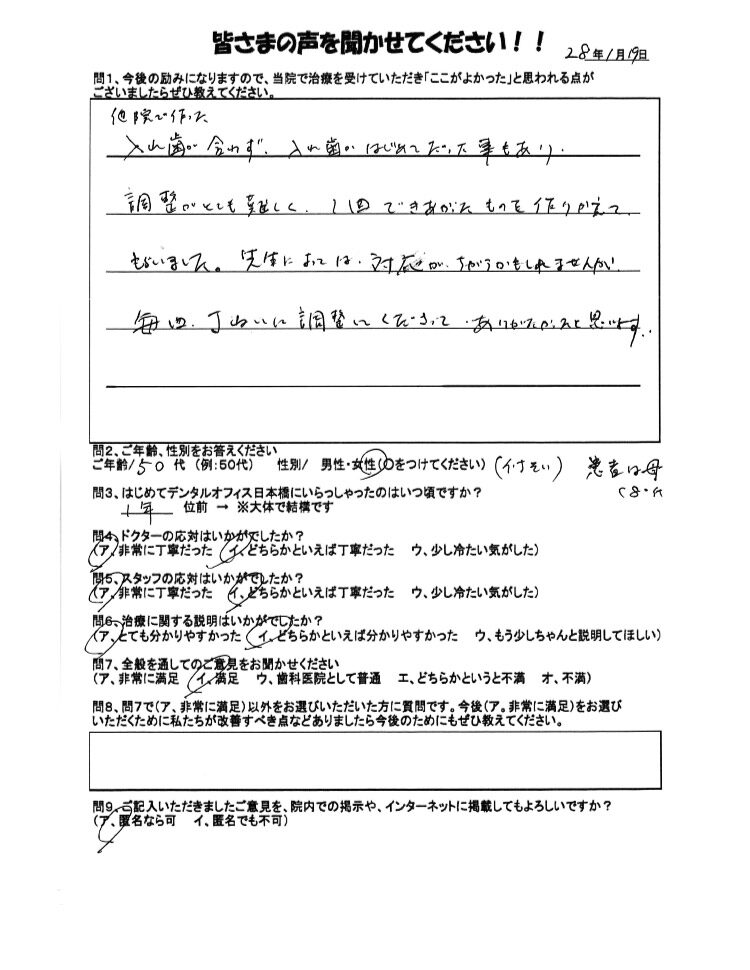 皆さまの声を聞かせてください！！
28年1月19日
問1、今後の励みになりますので、当院で治療を受けていただき「ここがよかった」と思われる点が
ございましたらぜひ教えてください。
他院で作った
入れ歯が合わず、入れ歯がはじめてだった事もあり、
調整がとても難しく、1回できあがたものを作りかえて
もらいました。先生によっては、対応が、ちがうかもしれませんが
毎回、丁ねいに調整してくださって、ありがたかったと思います。
問2、ご年齢、性別をお答えください
ご年齢/50代（例：50代）　性別/　男性・女性（○をつけてください）（付きそい）　患者は母
問3、はじめてデンタルオフィス日本橋にいらっしゃったのはいつ頃ですか？
1年　位前　→　※大体で結構です
問4、ドクターの応対はいかがでしたか？
（ア、非常に丁寧だった　イ、どちらかといえば丁寧だった　ウ、少し冷たい気がした）
問5、スタッフの応対はいかがでしたか？
（ア、非常に丁寧だった　イ、どちらかといえば丁寧だった　ウ、少し冷たい気がした）
問6、治療に関する説明はいかがでしたか？
（ア、とても分かりやすかった　イ、どちらかといえば分かりやすかった　ウ、もう少しちゃんと説明してほしい）
問7、全般を通してのご意見をお聞かせください
（ア、非常に満足　イ、満足　ウ、歯科医院として普通　エ、どちらかというと不満　オ、不満）
問8、問7で（ア、非常に満足）以外をお選びいただいた方に質問です。今後（ア。非常に満足）をお選び
いただくために私たちが改善すべき点などありましたら今後のためにもぜひ教えてください。
問9、ご記入いただきましたご意見を、院内での掲示や、インターネットに掲載してもよろしいですか？
（ア、匿名なら可　イ、匿名でも不可）